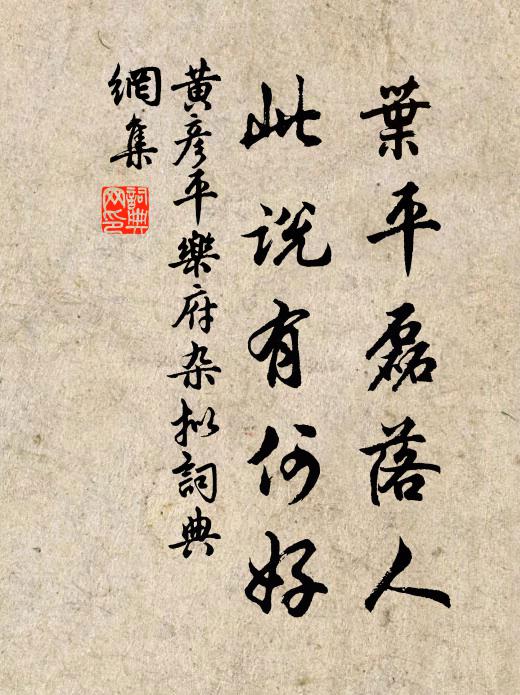 葉平磊落人
此説有何好
黃彥平樂府杂拟詞典
網集
詞典網印